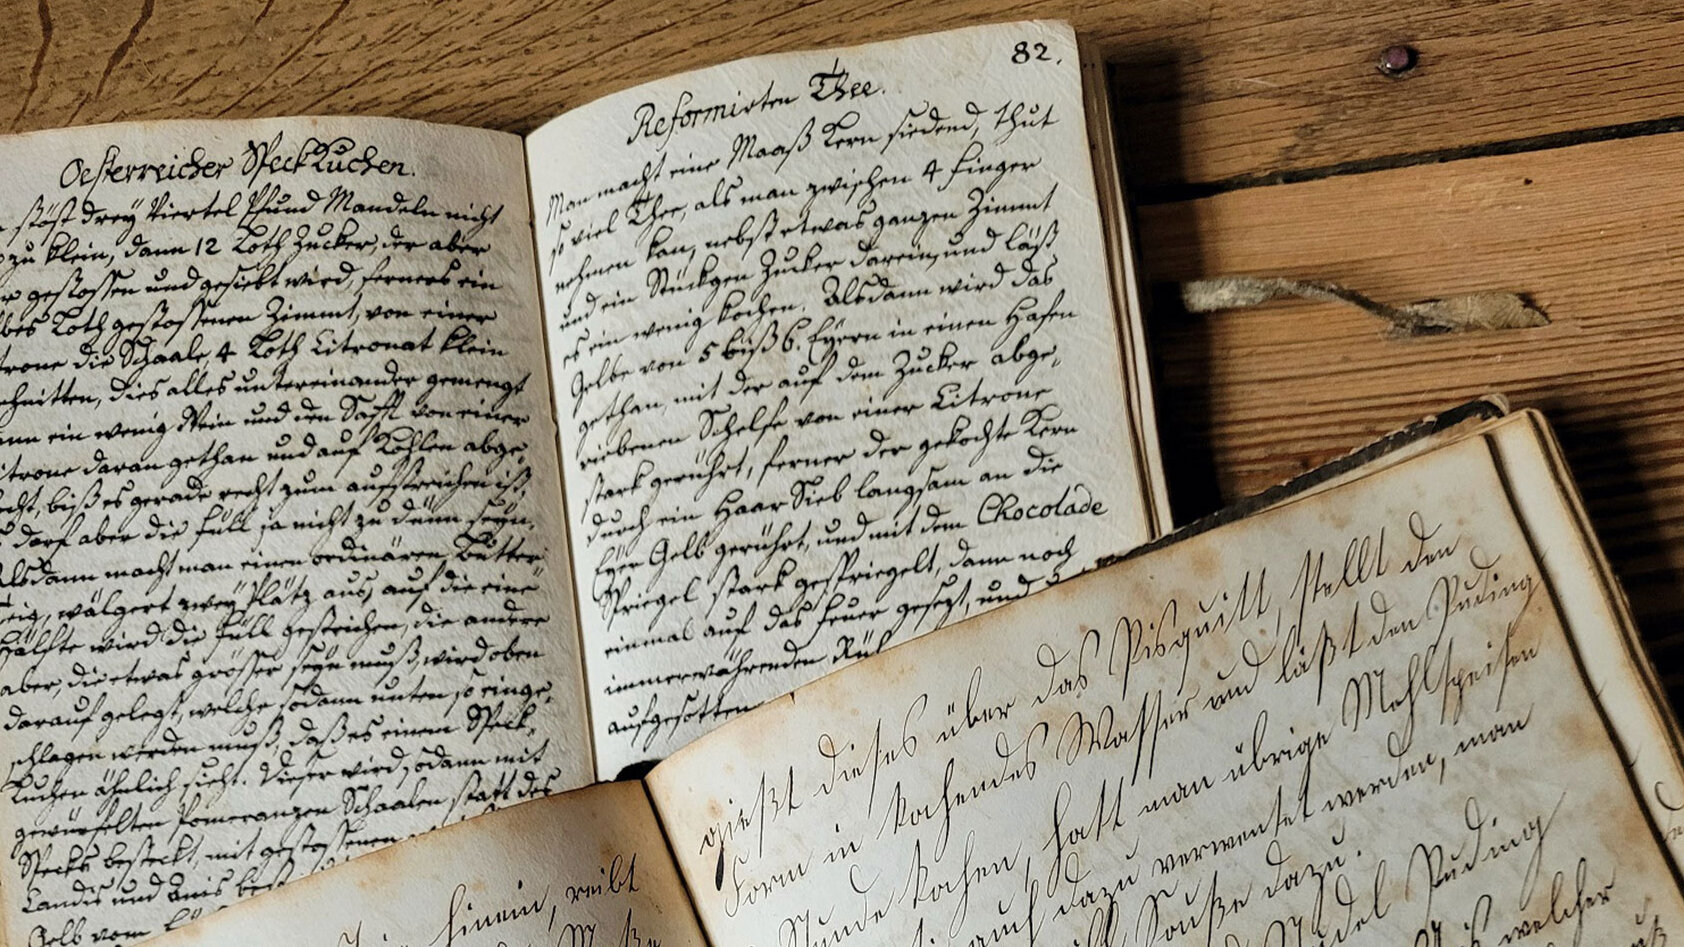 Oesterreicher SpeckKuchen.
stöst drey Viertel Pfund Mandeln nicht
zu klein, dann 12 Loth Zucker, der aber
gestossen und gesiebt wird, ferners ein
Loth gestossenen Zimmt, von einer
trone die Schaale, 4 Loth Citronat klein
schnitten, dies alles untereinander gemengt
ein wenig Wein und den Safft von einer
itrone daran gethan und auf Kohlen abge„
biß es gerade recht zum aufstreichen ist,
darf aber die Füll ja nicht zu dünn seyn,
lsdann macht man einen ordinären Butter„
eig, wälgert zwey Plätz aus, auf die eine
Hälfte wird die Füll gestrichen, die andere
aber, die etwas grösser seyn muß, wird oben
darauf gelegt, welche sodann unten so einge„
schlagen werden muß, daß es einem Speck„
Kuchen ähnlich sieht. Dieser wird sodann mit
gewürfelten Pomeranzen Schaalen statt des
Specks besteckt, mit gestossenen
Candis und Anis
Gelb vom
82.
Reformirten Thee.
Man macht eine Maaß Kern siedend, thut
so viel Thee, als man zwischen 4 Finger
nehmen kan, nebst etwas ganzen Zimmt
und ein Stückgen Zucker darein, und läßt
es ein wenig kochen. Alsdann wird das
Gelbe von 5 biß 6. Eyern in einen Hafen
gethan, mit der auf dem Zucker abge„
riebenen Schelfe von einer Citrone
stark gerührt, ferner der gekochte Kern
durch ein Haar Sieb langsam an die
Eyer Gelb gerührt, und mit dem Chocolade
Spriegel stark gespriegelt, dann noch
einmal auf das Feuer gesezt, und
immerwährenden
aufgesotten
hinein, reibt
gießt dieses über das Pisquitt, stellt den
Form in kochendes Wasser und läßt den Puding
Stunde kochen, hatt man übrige Mehlspeisen
auch dazu verwentet werden, man
Souße dazu.
Puding
welcher